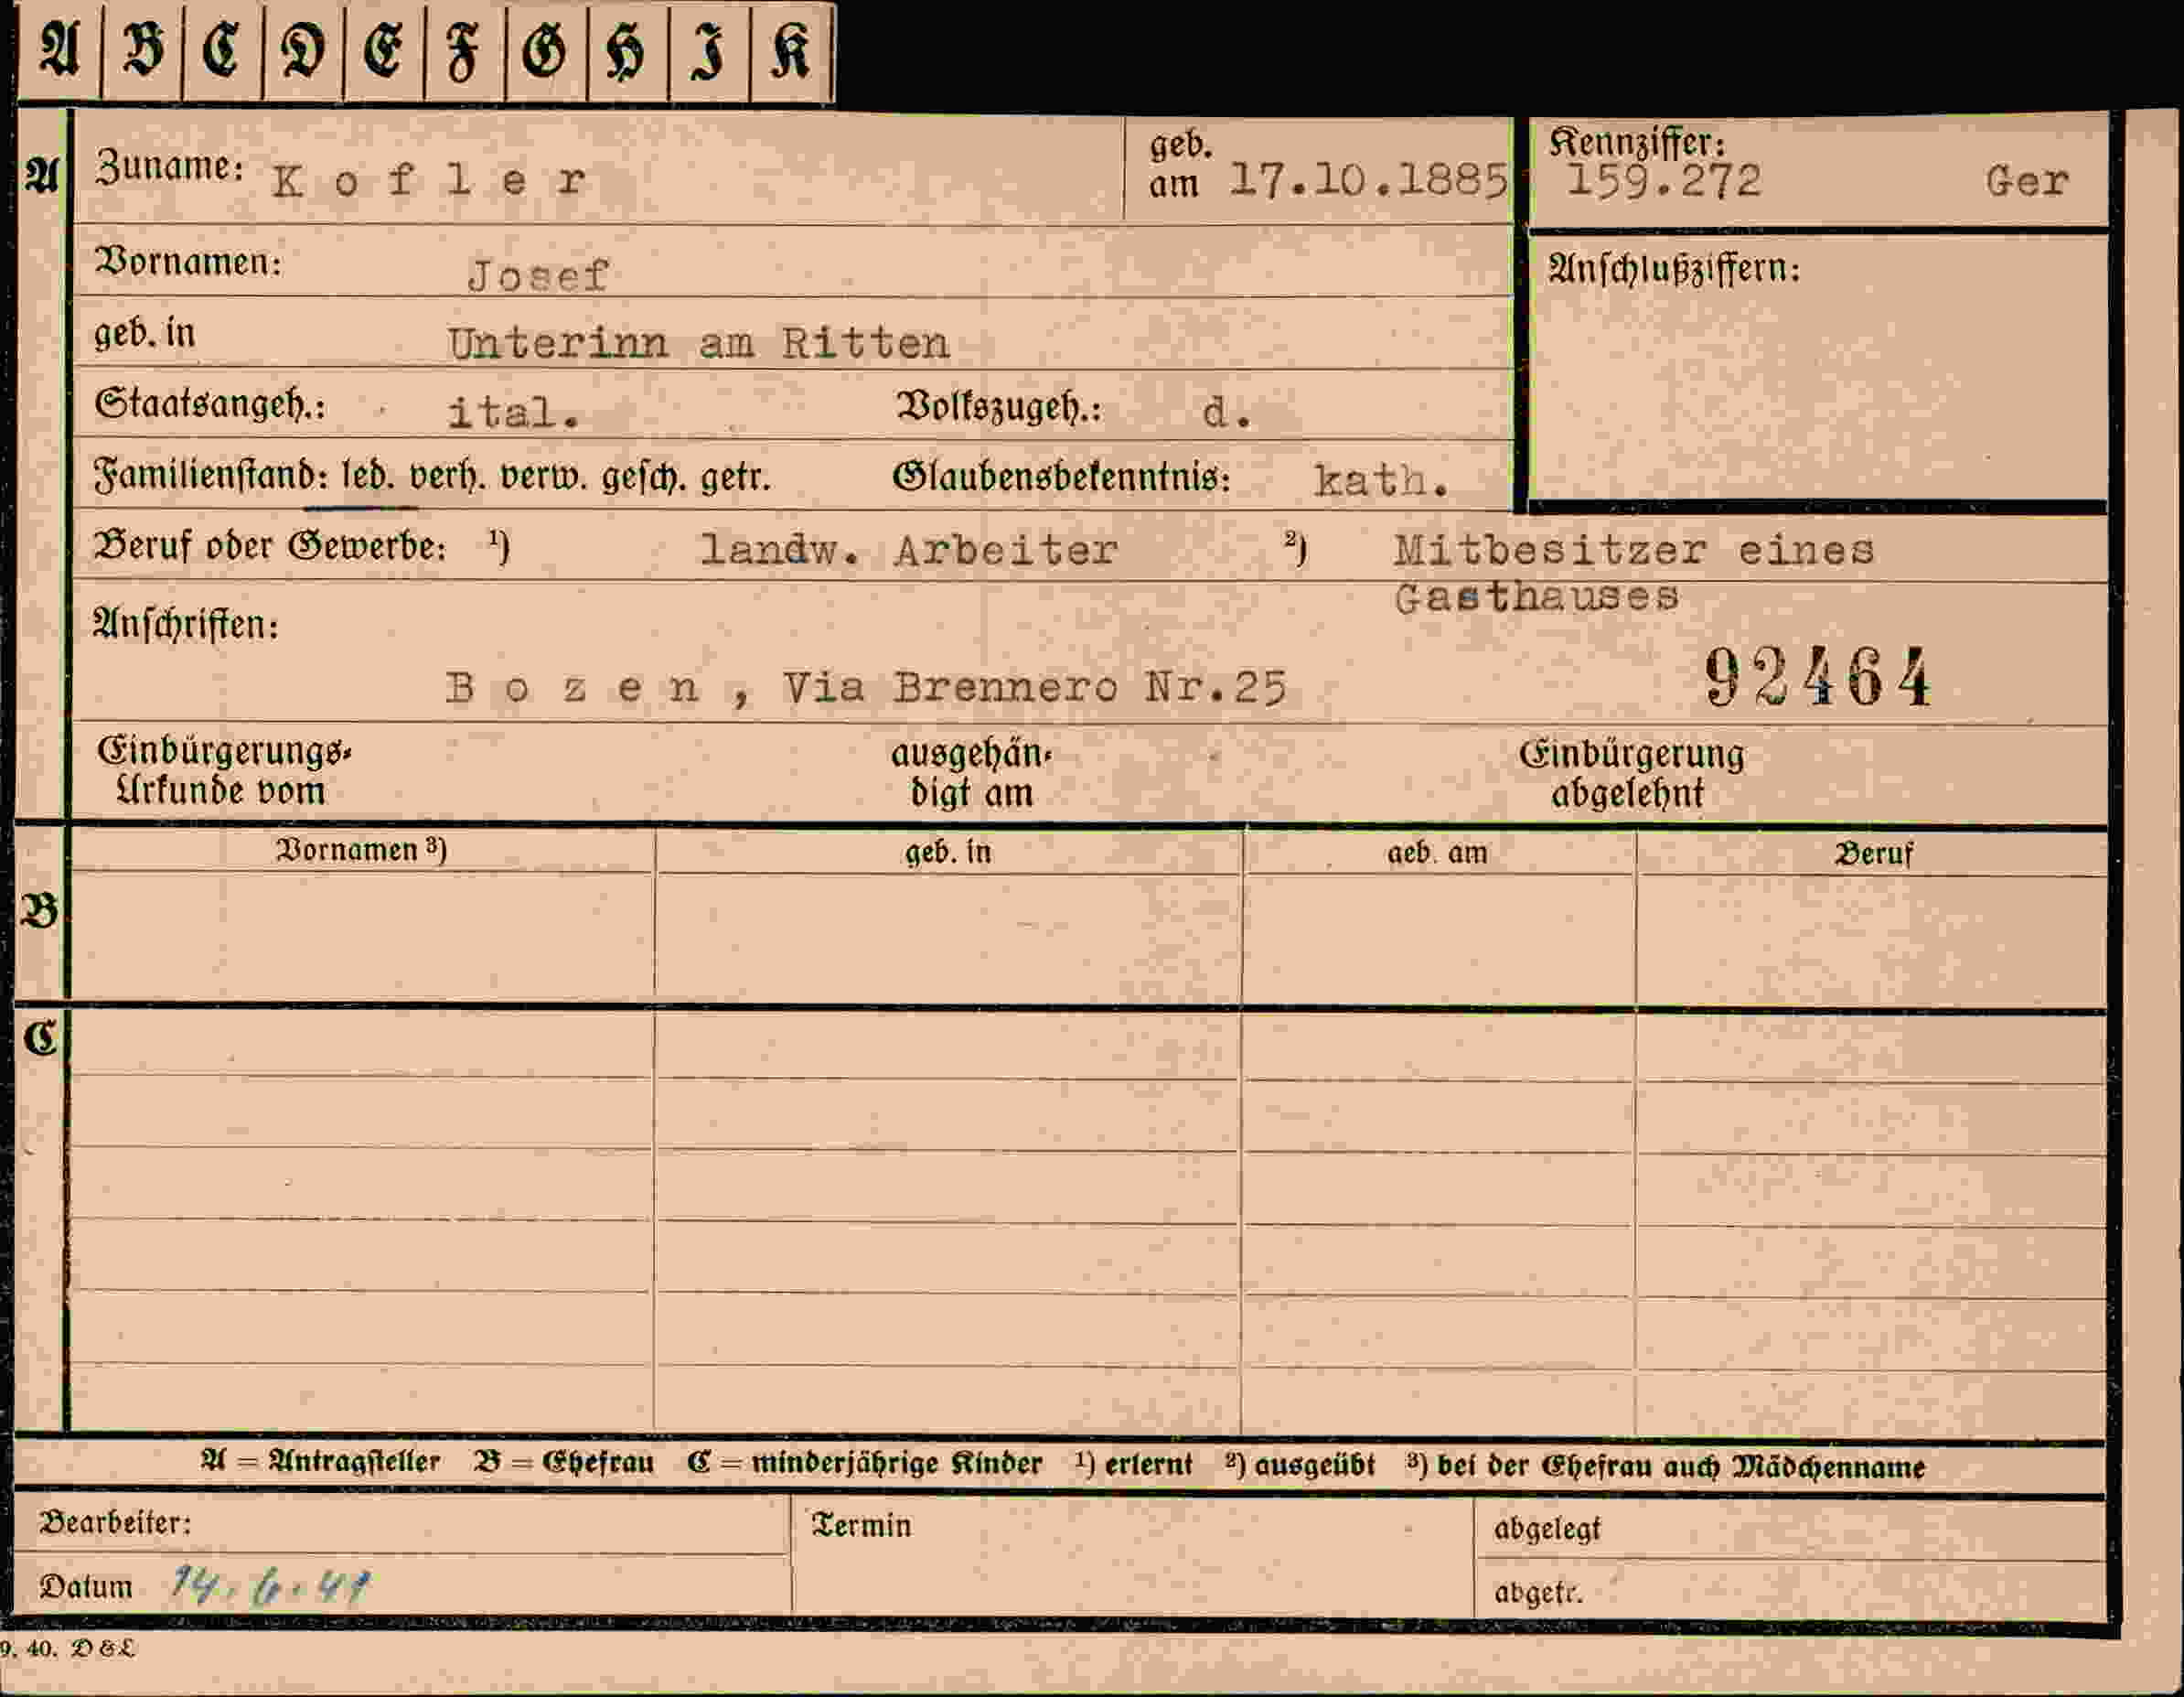 A B C D E F G H I K
A Zuname: K o f l e r geb. am 17.10.1885 Kennziffer: 159.272 Ger
Vornamen: Josef Anschlußziffern:
geb. in Unterinn am Ritten
Staatsangeh.: ital. Volkszugeh.: d.
Familienstand: led. verh. verw. gesch. getr. Glaubensbekenntnis: kath.
Beruf oder Gewerbe: ¹) landw. Arbeiter ²) Mitbesitzer eines
Gasthauses
Anschriften:
92464
B o z e n , Via Brennero Nr.25
Einbürgerungs- ausgehän- Einbürgerung
Urkunde vom digt am abgelehnt
Vornamen ³) geb. in geb. am Beruf
B
C
A = Antragsteller B = Ehefrau C = minderjährige Kinder ¹) erlernt ²) ausgeübt ³) bei der Ehefrau auch Mädchenname
Bearbeiter: Termin abgelegt
Datum 14.6.41 abgetr.
9. 40. D & L